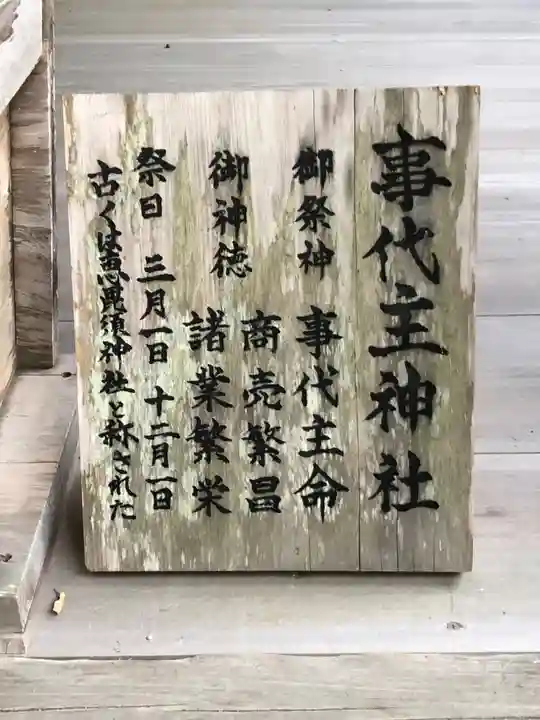 事代主神社
御祭神 事代主命
御神徳 商売繁昌
諸業繁栄
祭日 三月一日 十二月一日
古くは恵毘須神社と称された